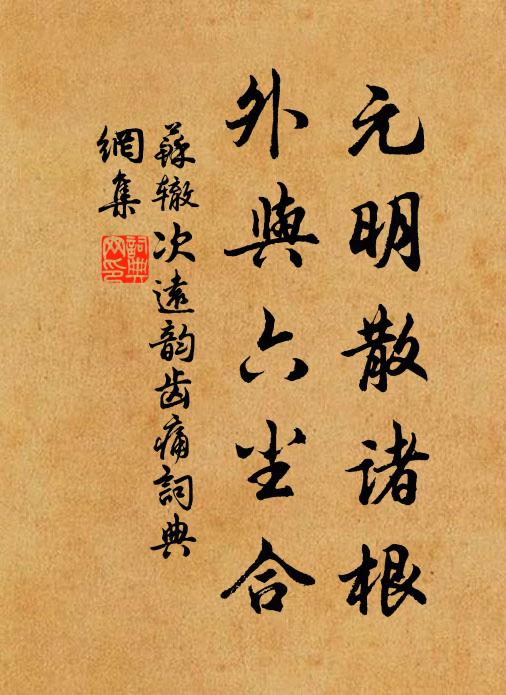 元明散诸根
外與六尘合
蘇辙次遠韵齿痛詞典
網集
詞典
网印